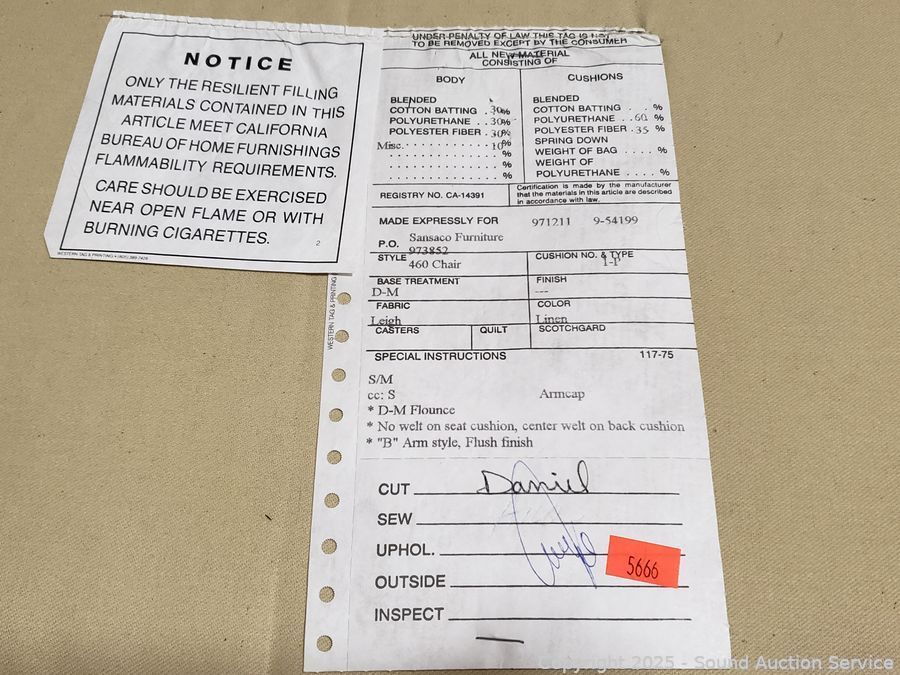 NOTICE
ONLY THE RESILIENT FILLING
MATERIALS CONTAINED IN THIS
ARTICLE MEET CALIFORNIA
BUREAU OF HOME FURNISHINGS
FLAMMABILITY REQUIREMENTS.
CARE SHOULD BE EXERCISED
NEAR OPEN FLAME OR WITH
BURNING CIGARETTES.
2
WESTERN TAG & PRINTING
UNDER PENALTY OF LAW THIS TAG IS NOT
TO BE REMOVED EXCEPT BY THE CONSUMER
ALL NEW MATERIAL
CONSISTING OF
BODY
BLENDED
COTTON BATTING . 30%
POLYURETHANE . . 30%
POLYESTER FIBER . 30%
Misc. . . . . . . . 10%
. . . . . . . . . . . . %
. . . . . . . . . . . . %
. . . . . . . . . . . . %
CUSHIONS
BLENDED
COTTON BATTING . . . %
POLYURETHANE . . 60 %
POLYESTER FIBER . 35 %
SPRING DOWN
WEIGHT OF BAG . . . . %
WEIGHT OF
POLYURETHANE . . . . %
REGISTRY NO. CA-14391
Certification is made by the manufacturer
that the materials in this article are described
in accordance with law.
MADE EXPRESSLY FOR 971211 9-54199
Sansaco Furniture
P.O. 973852
STYLE 460 Chair
CUSHION NO. & TYPE
BASE TREATMENT
D-M
FINISH
---
FABRIC
Leigh
COLOR
Linen
CASTERS QUILT SCOTCHGARD
SPECIAL INSTRUCTIONS 117-75
S/M
cc: S Armcap
* D-M Flounce
* No welt on seat cushion, center welt on back cushion
* "B" Arm style, Flush finish
CUT Daniel
SEW
UPHOL.
OUTSIDE
INSPECT
5666
WESTERN TAG & PRINTING
Copyright 2025 - Sound Auction Service